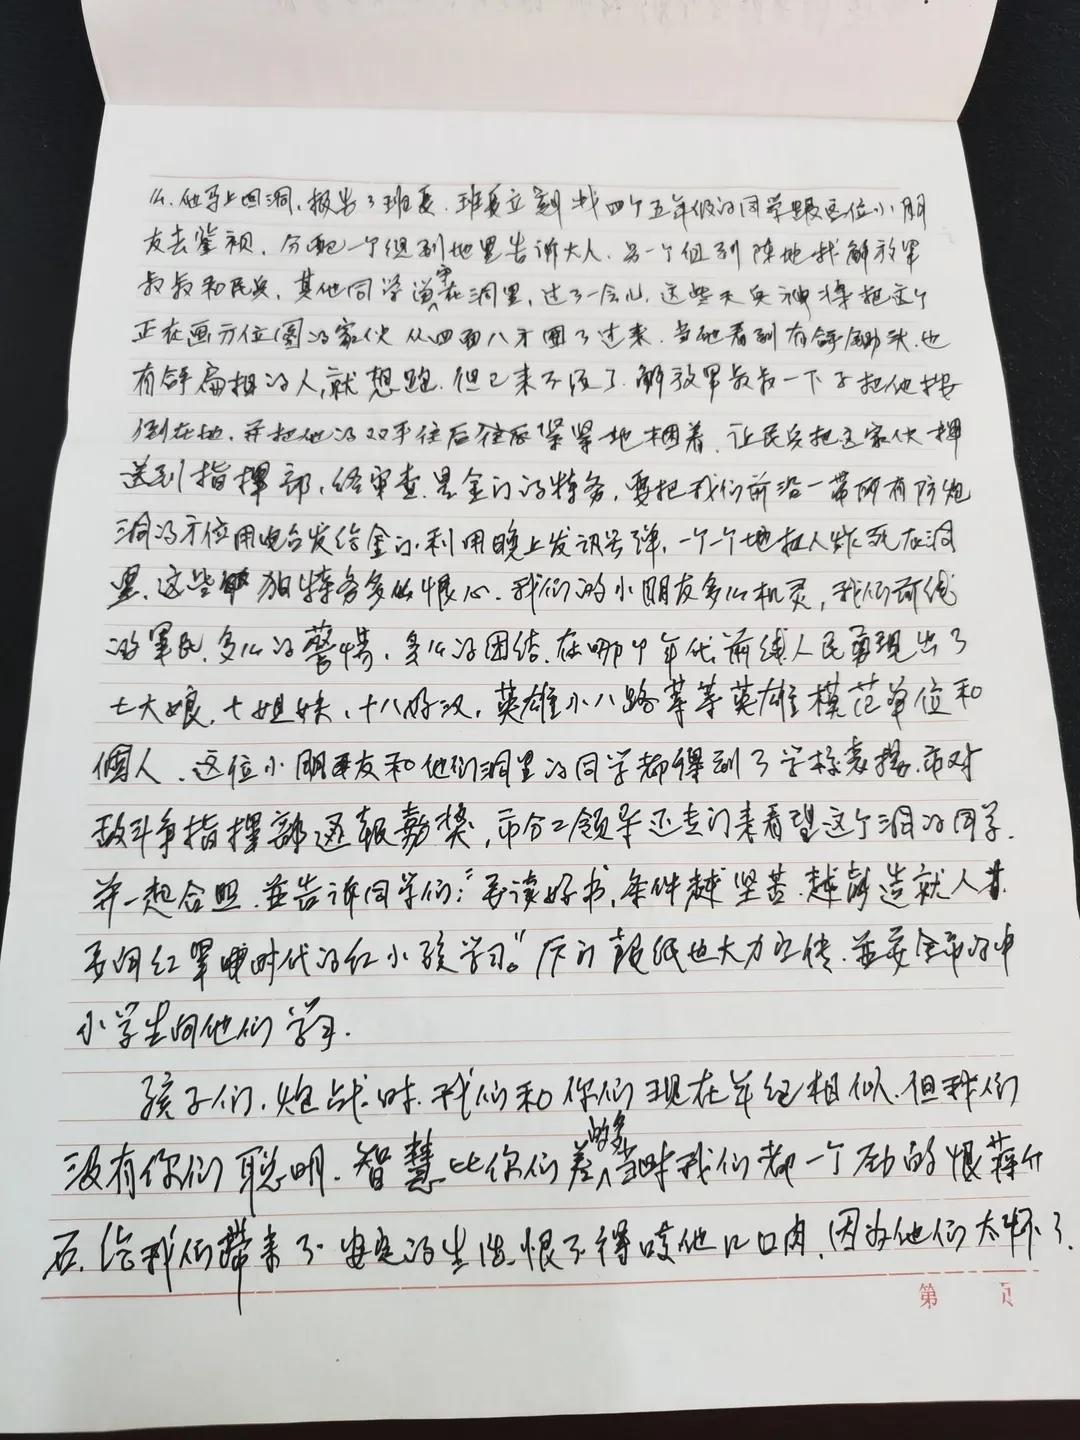 么、他马上回洞,报告了班长.班长立刻找四个五年级的同学跟这位小朋
友去鉴视.分配一个组到地里告诉大人.另一个组到阵地找解放军
叔叔和民兵,其他同学守在洞里,过了一会儿,这些天兵神将把这个
正在画方位图的家伙从四面八方围了过来.当他看到有拿锄头,也
有拿扁担的人,就想跑.但已来不及了.解放军叔叔一下子把他按
倒在地.并把他的双手往后往后紧紧地捆着.让民兵把这家伙押
送到指挥部,经审查.是金门的特务,要把我们前沿一带所有防炮
洞的方位用电台发给金门.利用晚上发讯号弹,一个个地把人炸死在洞
里.这些特务多么恨心.我们的小朋友多么机灵,我们前线
的军民.多么的警惕,多么的团结.在哪个年代,前线人民勇现出了
七大娘,七姐妹、十八好汉,英雄小八路等等英雄模范单位和
個人.这位小朋友和他们洞里的同学都得到了学校表扬.市对
敌斗争指挥部通报嘉奖,市分工领导还专门来看望这个洞的同学.
并一起合照.并告诉同学们:"要读好书,条件越坚苦.越能造就人才.
要向红军时代的红小孩学习"。厦门报纸也大力宣传.并要全市的中
小学生向他们学习.
孩子们.炮战时.我们和你们现在年纪相似.但我们
没有你们聪明.智慧比你们差的多当时我们都一个劲的恨蒋介
石.给我们带来了不安定的生活.恨不得咬他几口肉.因为他们太坏了.
第 页